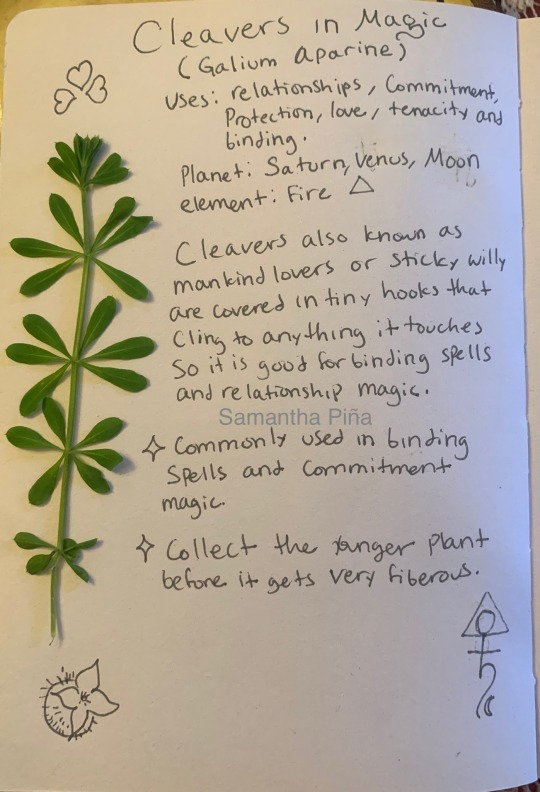 Cleavers in Magic
(Galium aparine)
Uses: relationships, Commitment,
Protection, love, tenacity and
binding.
Planet: Saturn, Venus, Moon
element: Fire
Cleavers also known as
mankind lovers or sticky willy
are covered in tiny hooks that
Cling to anything it touches
So it is good for binding spells
and relationship magic.
Samantha Piña
Commonly used in binding
Spells and commitment
magic.
Collect the yunger plant
before it gets very fiberous.